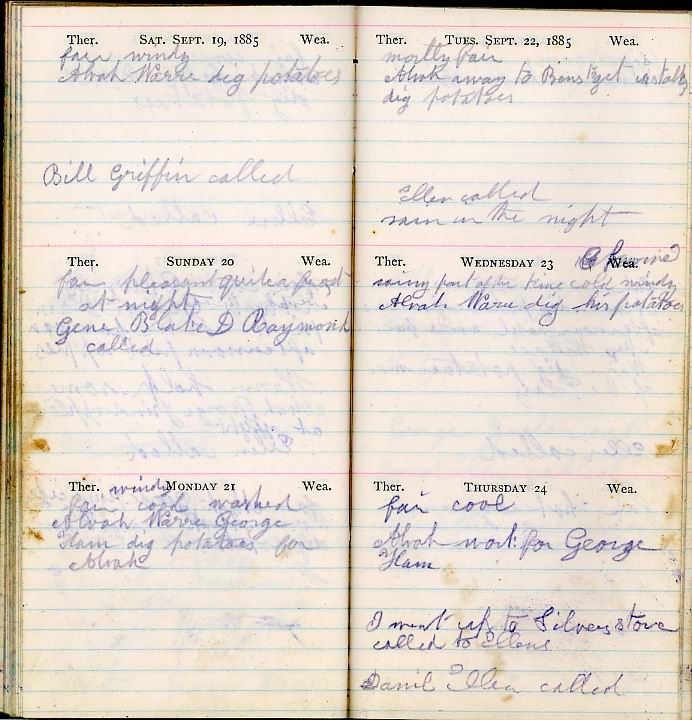 Ther. SAT. SEPT. 19, 1885 Wea.
fair windy
Alvah Warre dig potatoes
Bill Griffin called
Ther. SUNDAY 20 Wea.
fair pleasant quite a frost
at night
Gene Blake D Raymond
called
Ther. MONDAY 21 Wea.
windy
fair cool washed
Alvah Warre George
Ham dig potatoes for
Alvah
Ther. TUES. SEPT. 22, 1885 Wea.
mostly fair
Alvah away to Bens & get
dig potatoes
Ellen called
rain in the night
Ther. WEDNESDAY 23 Wea.
rainy part of the time cold windy
Alvah Warre dig his potatoes
Ther. THURSDAY 24 Wea.
fair cool
Alvah work for George
Ham
I went up to Silvers store
called to Ellens
Danil Ellen called